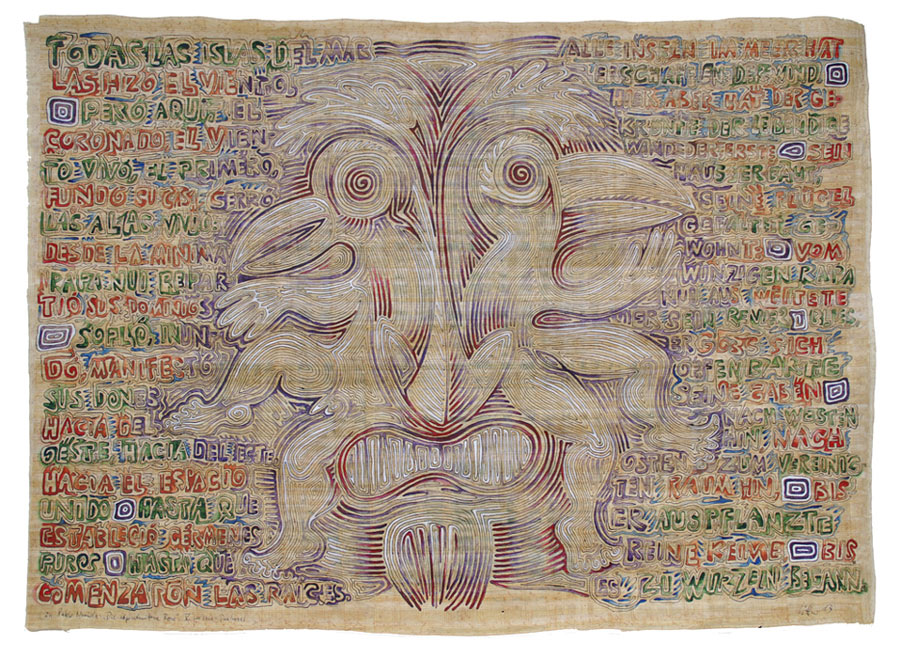 TODAS LAS ISLAS DEL MAR
LAS HIZO EL VIENTO,
PERO AQUI, EL
CORONADO, EL VIEN
TO VIVO, EL PRIMERO,
FUNDÓ SU CASA, CERRÓ
LAS ALAS, VIVIÓ
DESDE LA MINIMA
RAPA NUI REPAR
TIÓ SUS DOMINIOS
SOPLÓ, INUN
DÓ, MANIFESTÓ
SUS DONES
HACIA DEL
OESTE, HACIA DEL ESTE
HACIA EL ESPACIO
UNIDO HASTA QUE
ESTABLECIÓ GÉRMENES
PUROS HASTA QUE
COMENZARON LAS RAICES.
ALLE INSELN IM MEER HAT
DER WIND.
HIER ABER HAT DER GE
KRÖNTE, DER LEBENDIGE
WIND, DER ERSTE SEIN
HAUS ERBAUT,
SEINE FLÜGEL
GEFALTET, GE
WOHNT VOM
WINZIGEN RAPA
NUI AUS WEITETE
ER SEIN BLIES,
ERGOSS SICH
OFFENBARTE
SEINE GABEN
NACH WESTEN
HIN, NACH
OSTEN, ZUM VEREINIG
TEN RAUM HIN, BIS
ER AUSPFLANZTE
REINE KEIME BIS
ES ZU WURZELN BEGANN.
Zu Pablo Neruda